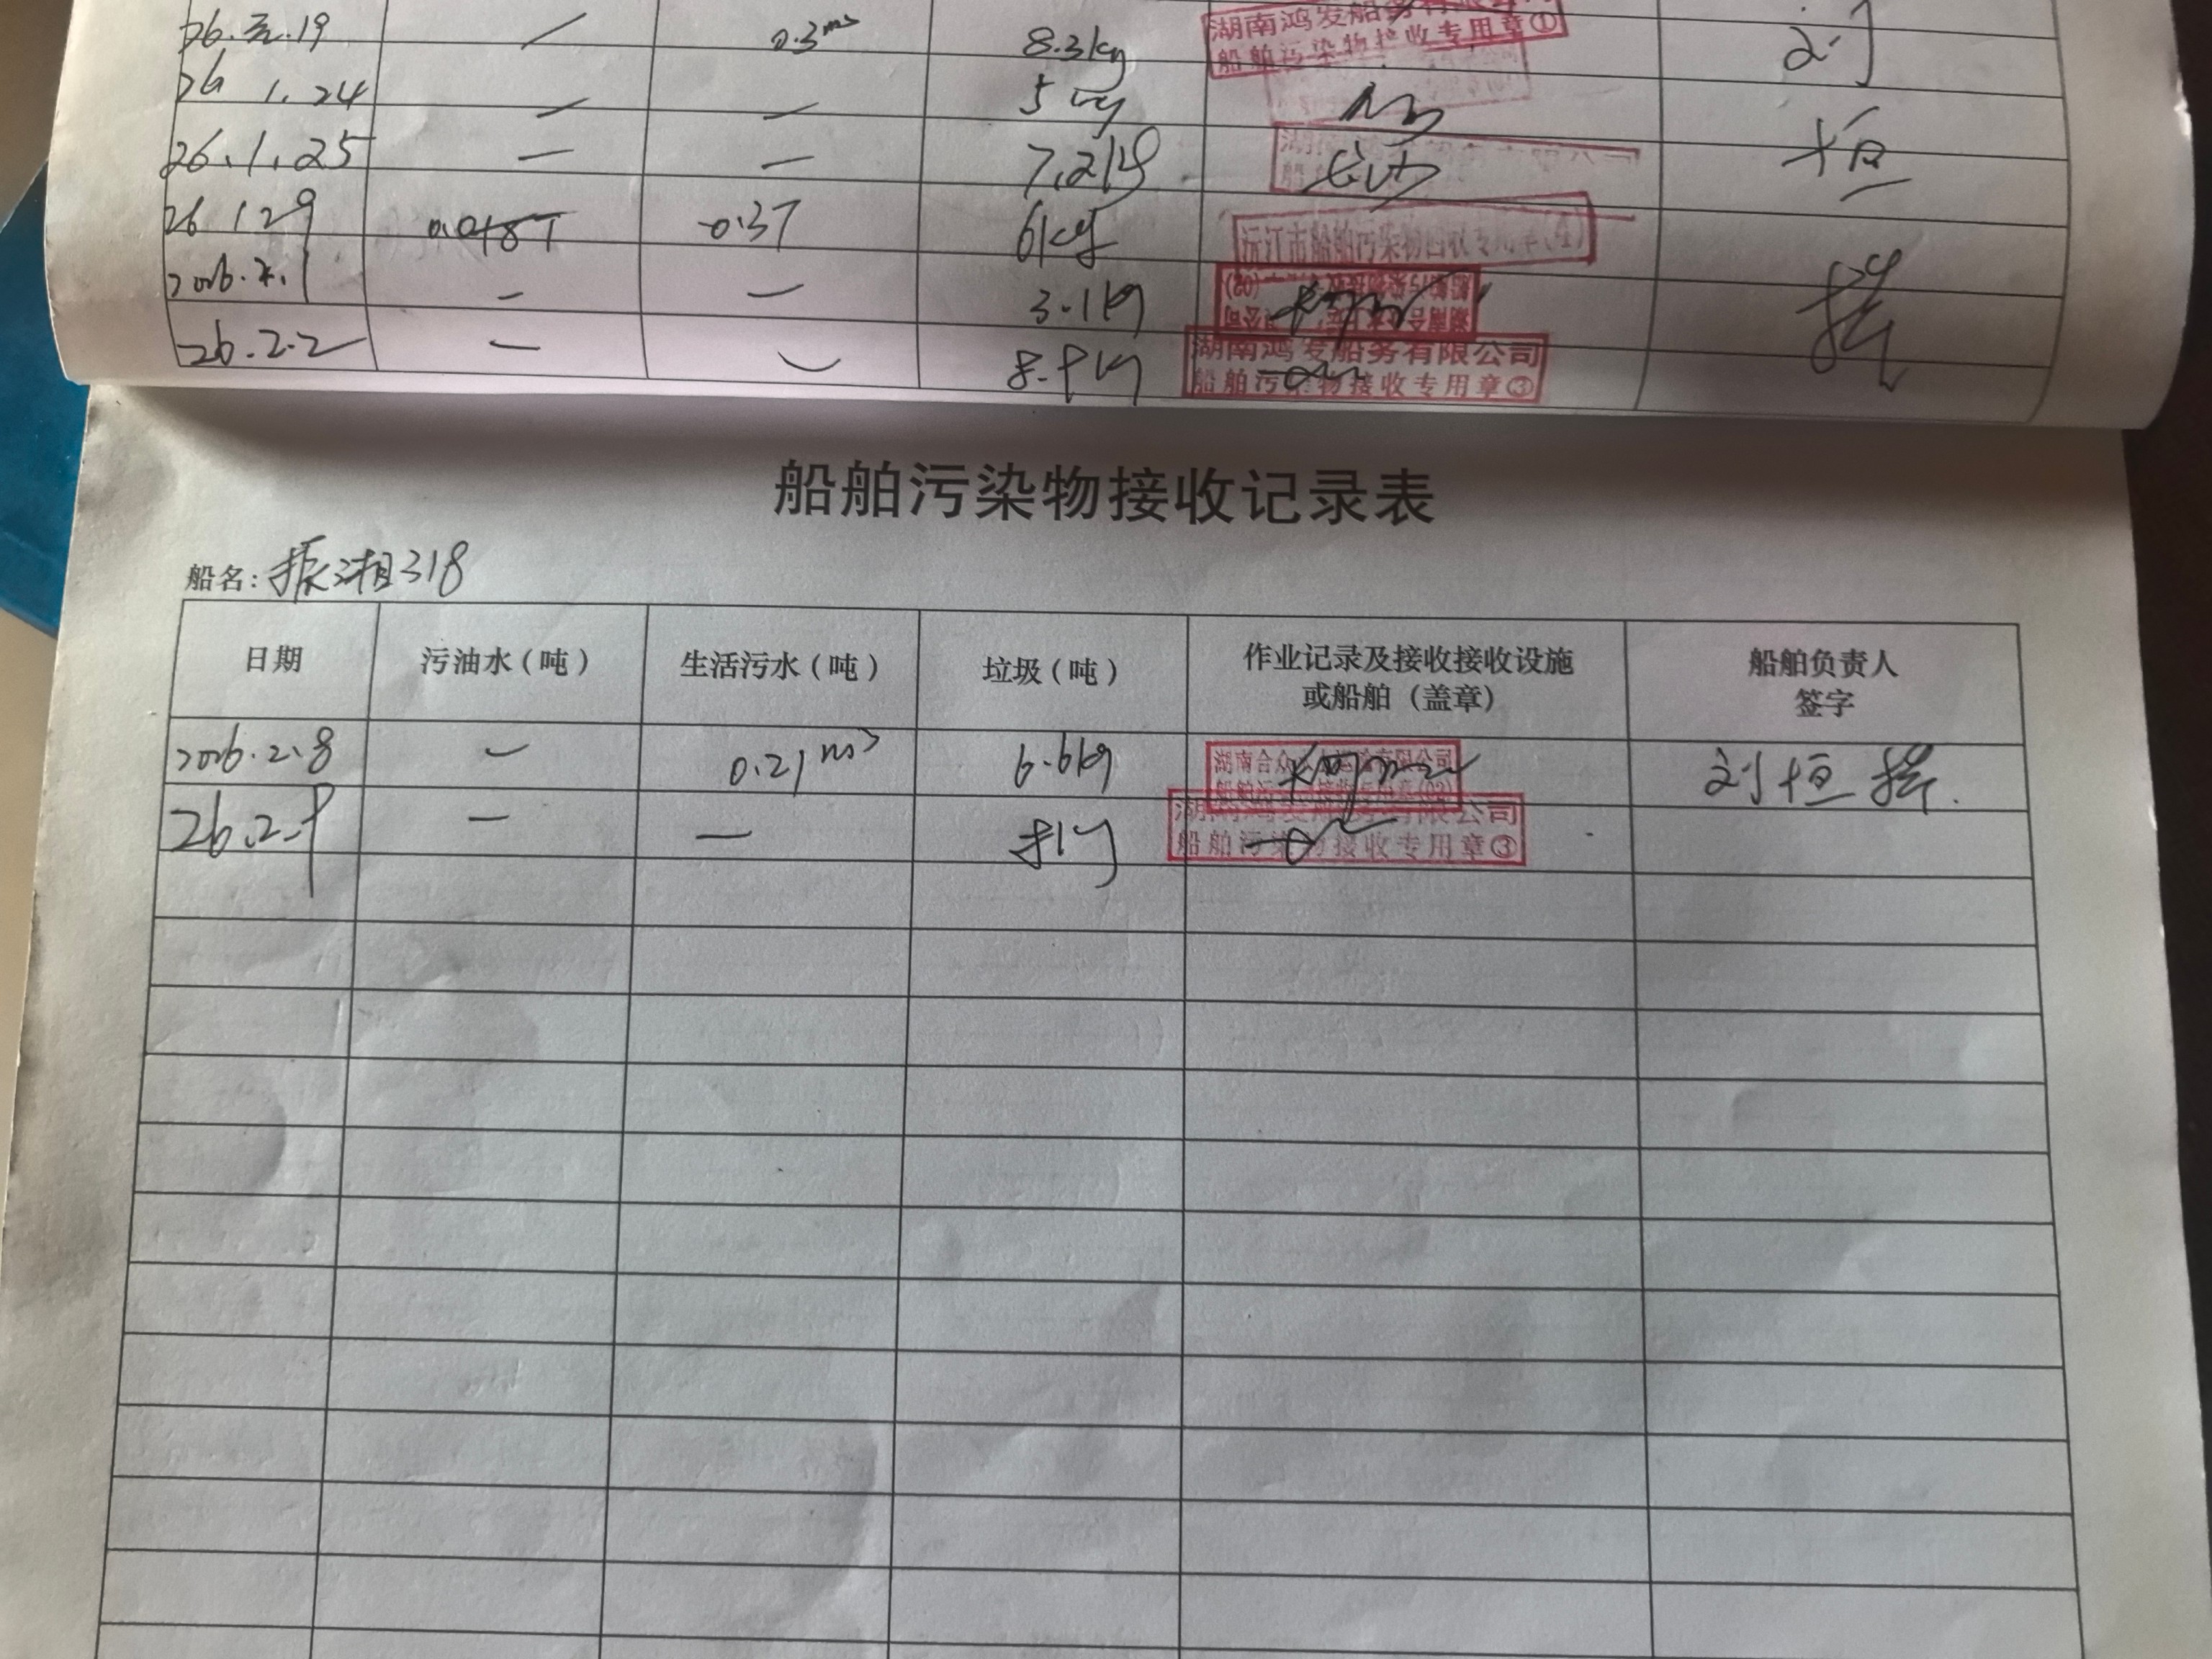 26.元.19 / 0.3m³ 8.3kg 湖南鸿发船务有限公司 刘
船舶污染物接收专用章①
26 1.24 — — 5kg
26.1.25 — — 7.2kg 恒
26 1 29 0.0487 0.37 6kg 沅江市船舶污染物回收专用章(4)
2026.2.1 — — 3.1kg
26.2.2 — — 8.9kg 湖南鸿发船务有限公司
船舶污染物接收专用章③
船舶污染物接收记录表
船名: 振湘318
日期 污油水（吨） 生活污水（吨） 垃圾（吨） 作业记录及接收接收设施 船舶负责人
或船舶（盖章） 签字
2026.2.8 — 0.21m³ 6.6kg 湖南合众 有限公司 刘恒
26.2.9 — — 湖南鸿发船务有限公司
船舶污染物接收专用章③